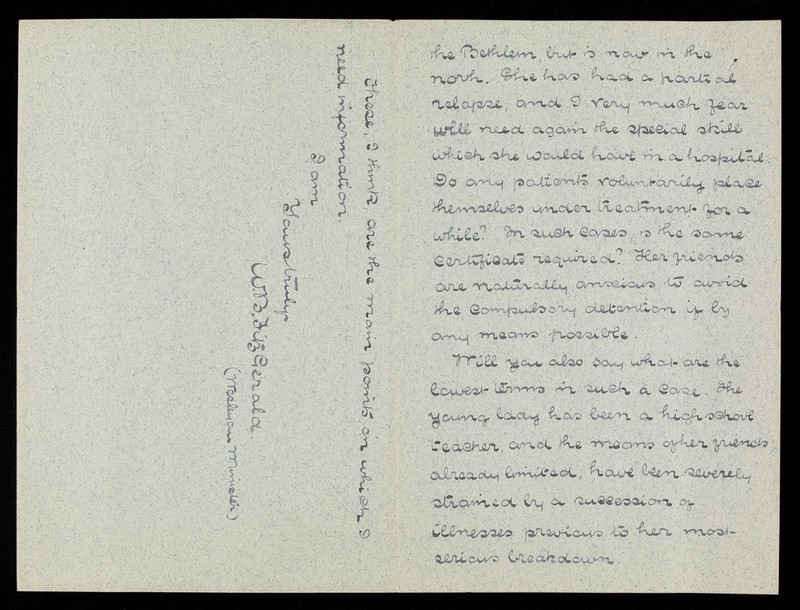 the Bethlem, but is now in the
north. She has had a partial
relapse, and I very much fear
will need again the special skill
which she would have in a hospital.
Do any patients voluntarily place
themselves under treatment for a
while? In such cases, is the same
certificate required? Her friends
are naturally anxious to avoid
the compulsory detention if by
any means possible.
Will you also say what are the
lowest terms in such a case. The
young lady has been a high school
teacher, and the means of her friends,
already limited, have been severely
strained by a succession of
illnesses previous to her most
serious breakdown.
These, I think are the main points on which I
need information.
I am
Yours truly
W.B. FitzGerald
(Wesleyan Minister)